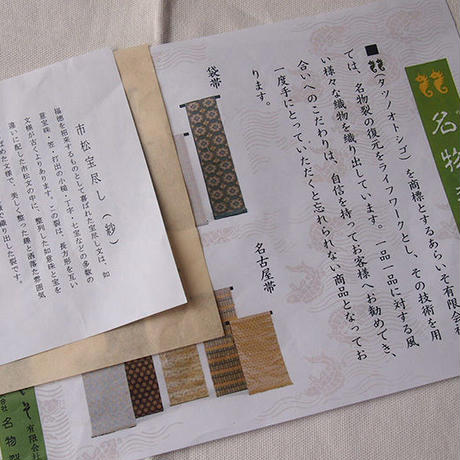 名物
■ （タツノオトシゴ）を商標とするあらいそ有限会社
では、名物裂の復元をライフワークとし、その技術を用
い様々な織物を織り出しています。一品一品に対する風
合いへのこだわりは、自信を持ってお客様へお勧めでき、
一度手にとっていただくと忘れられない商品となってお
ります。
袋帯
名古屋帯
市松宝尽し（紗）
福徳を招来するものとして喜ばれた宝尽し文は、如
意宝珠・笠・打出の小槌・丁字・七宝などの多数の
文様が古くよりあります。この裂は、長方形を互い
違いに配した市松文の中に、整列した如意珠と宝を
ちりばめた文様で、美しく整った趣と洒落た雰囲気
で織り出した裂です。
いそ有限会社
会社 名物裂